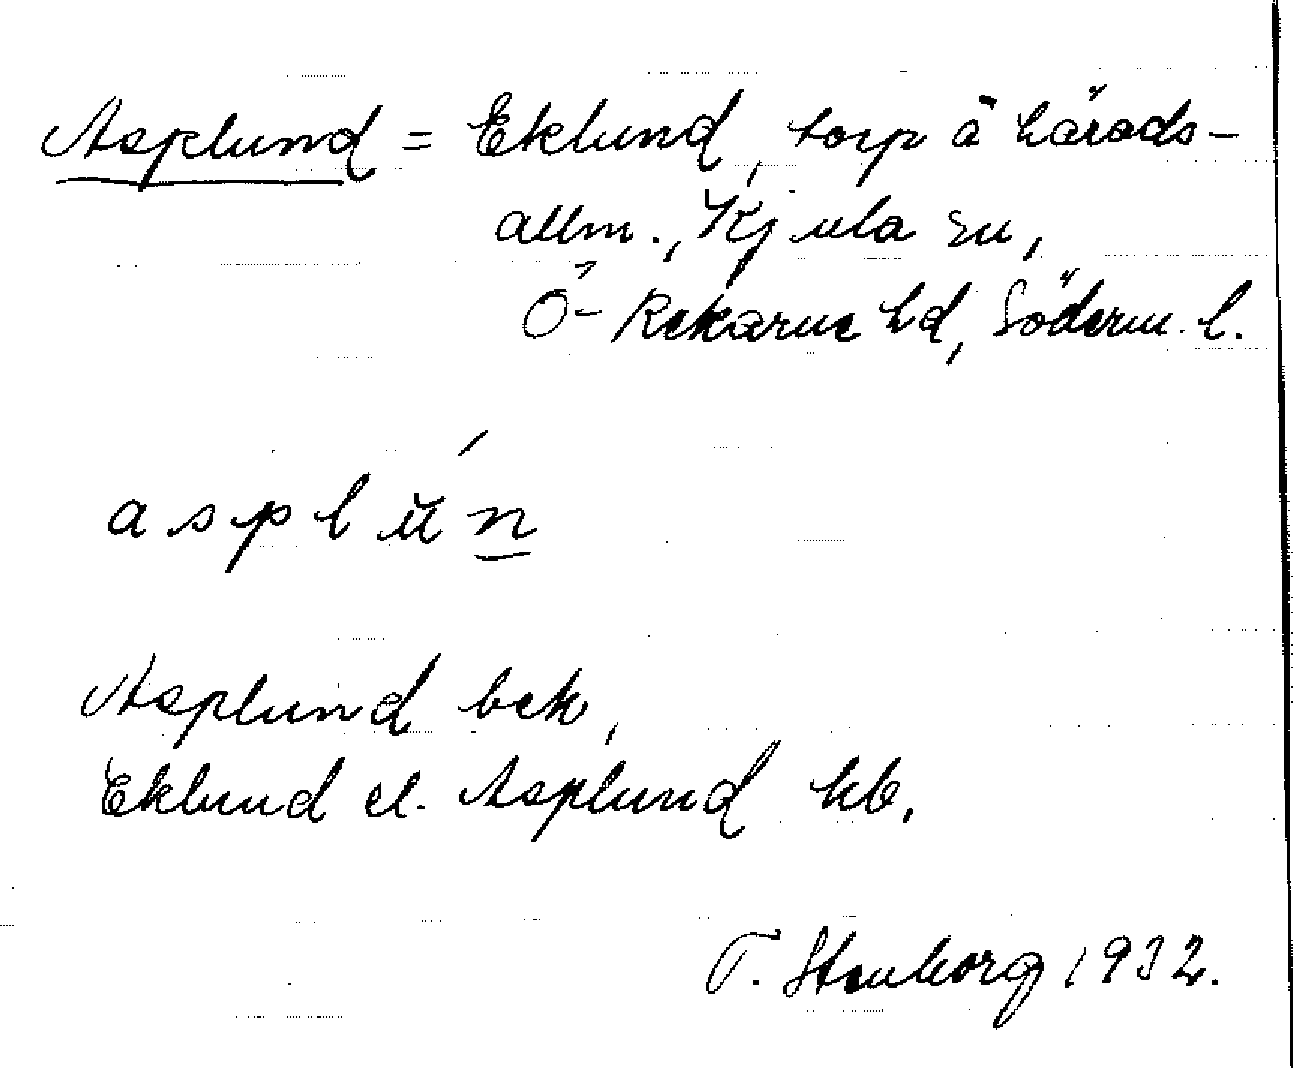 Asplund = Eklund, torp å härads-
allm., Kjula sn,
Ö- Rekarne hd, Söderm. l.
asplún
Asplund bek,
Eklund el. Asplund hb.
T. Stenborg 1932.